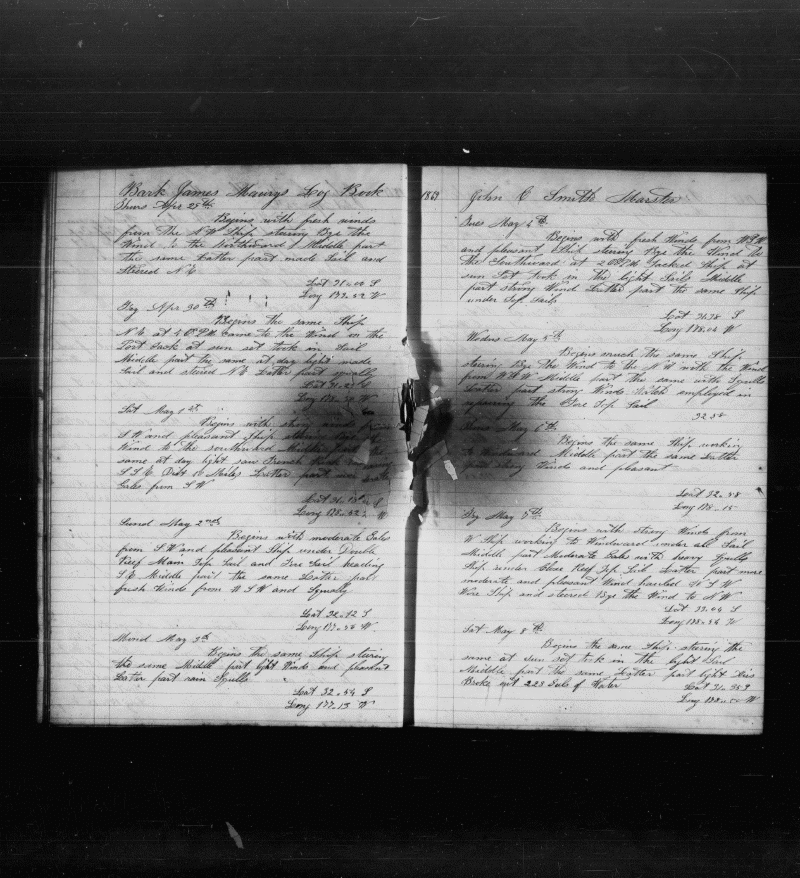 Bark James Maurys Log Book
Thurs Apr 29th
Begins with fresh winds
from the N W Ship stering Bye the
Wind to the Northward Middle part
the same Latter part made Sail and
Steered N E
Lat 31.00 S
Long 179.52 W
Fry Apr 30th
Begins the same Ship
N E at 4 O P M came to the Wind on the
Port tack at sun set took in Sail
Middle part the same at day light made
Sail and steered N E Latter part squally
Lat 31.21 S
Long W
Sat May 1st
Begins with strong winds from
S W and pleasant Ship stering Bye the
Wind to the southward Middle part the
same at day light saw French
S S E Dist 10 Miles Latter part
Gales from S W
Lat 31.13 S
Long 178.52 W
Sund May 2nd
Begins with moderate Gales
from S W and pleasant Ship under Double
Reef Main Top Sail and Fore Sail heading
S E Middle part the same Latter part
fresh Winds from W S W and Squally
Lat 32.12 S
Long 177.56 W
Mond May 3d
Begins the same Ship stering
the same Middle part light Winds and pleasant
Latter part rain Squalls
Lat 32.54 S
Long 177.13 W
1869
John C Smith Marster
Tues May 4th
Begins with fresh Winds from W S W
and pleasant Ship stering Bye the Wind to
the Southward at 2 O P M tacked Ship at
sun Set took in the light Sails Middle
part strong Wind Latter part the same Ship
under Top Sails
Lat 31.78 S
Long 178.04 W
Wedns May 5th
Begins much the same Ship
stering Bye the Wind to the N W with the Wind
from W S W Middle part the same with Squalls
Latter part strong Winds Watch employed in
repairing the Fore Top Sail
32.52
Thurs May 6th
Begins the same Ship working
to Windward Middle part the same Latter
part strong Winds and pleasant
Lat 32.38
Long 178.15
Fry May 7th
Begins with strong Winds from
W Ship working to Windward under all Sail
Middle part Moderate Gales with heavy Squalls
Ship under Close Reef Top Sails Latter part more
moderate and pleasant Wind hauled to S W
Wore Ship and steered Bye the Wind to N W
Lat 32.44 S
Long 178.56 W
Sat May 8th
Begins the same Ship stering the
same at Sun set took in the light Sail
Middle part the same Latter part light Airs
Broke out 223 bbls of Water
Lat 31.55 S
Long W